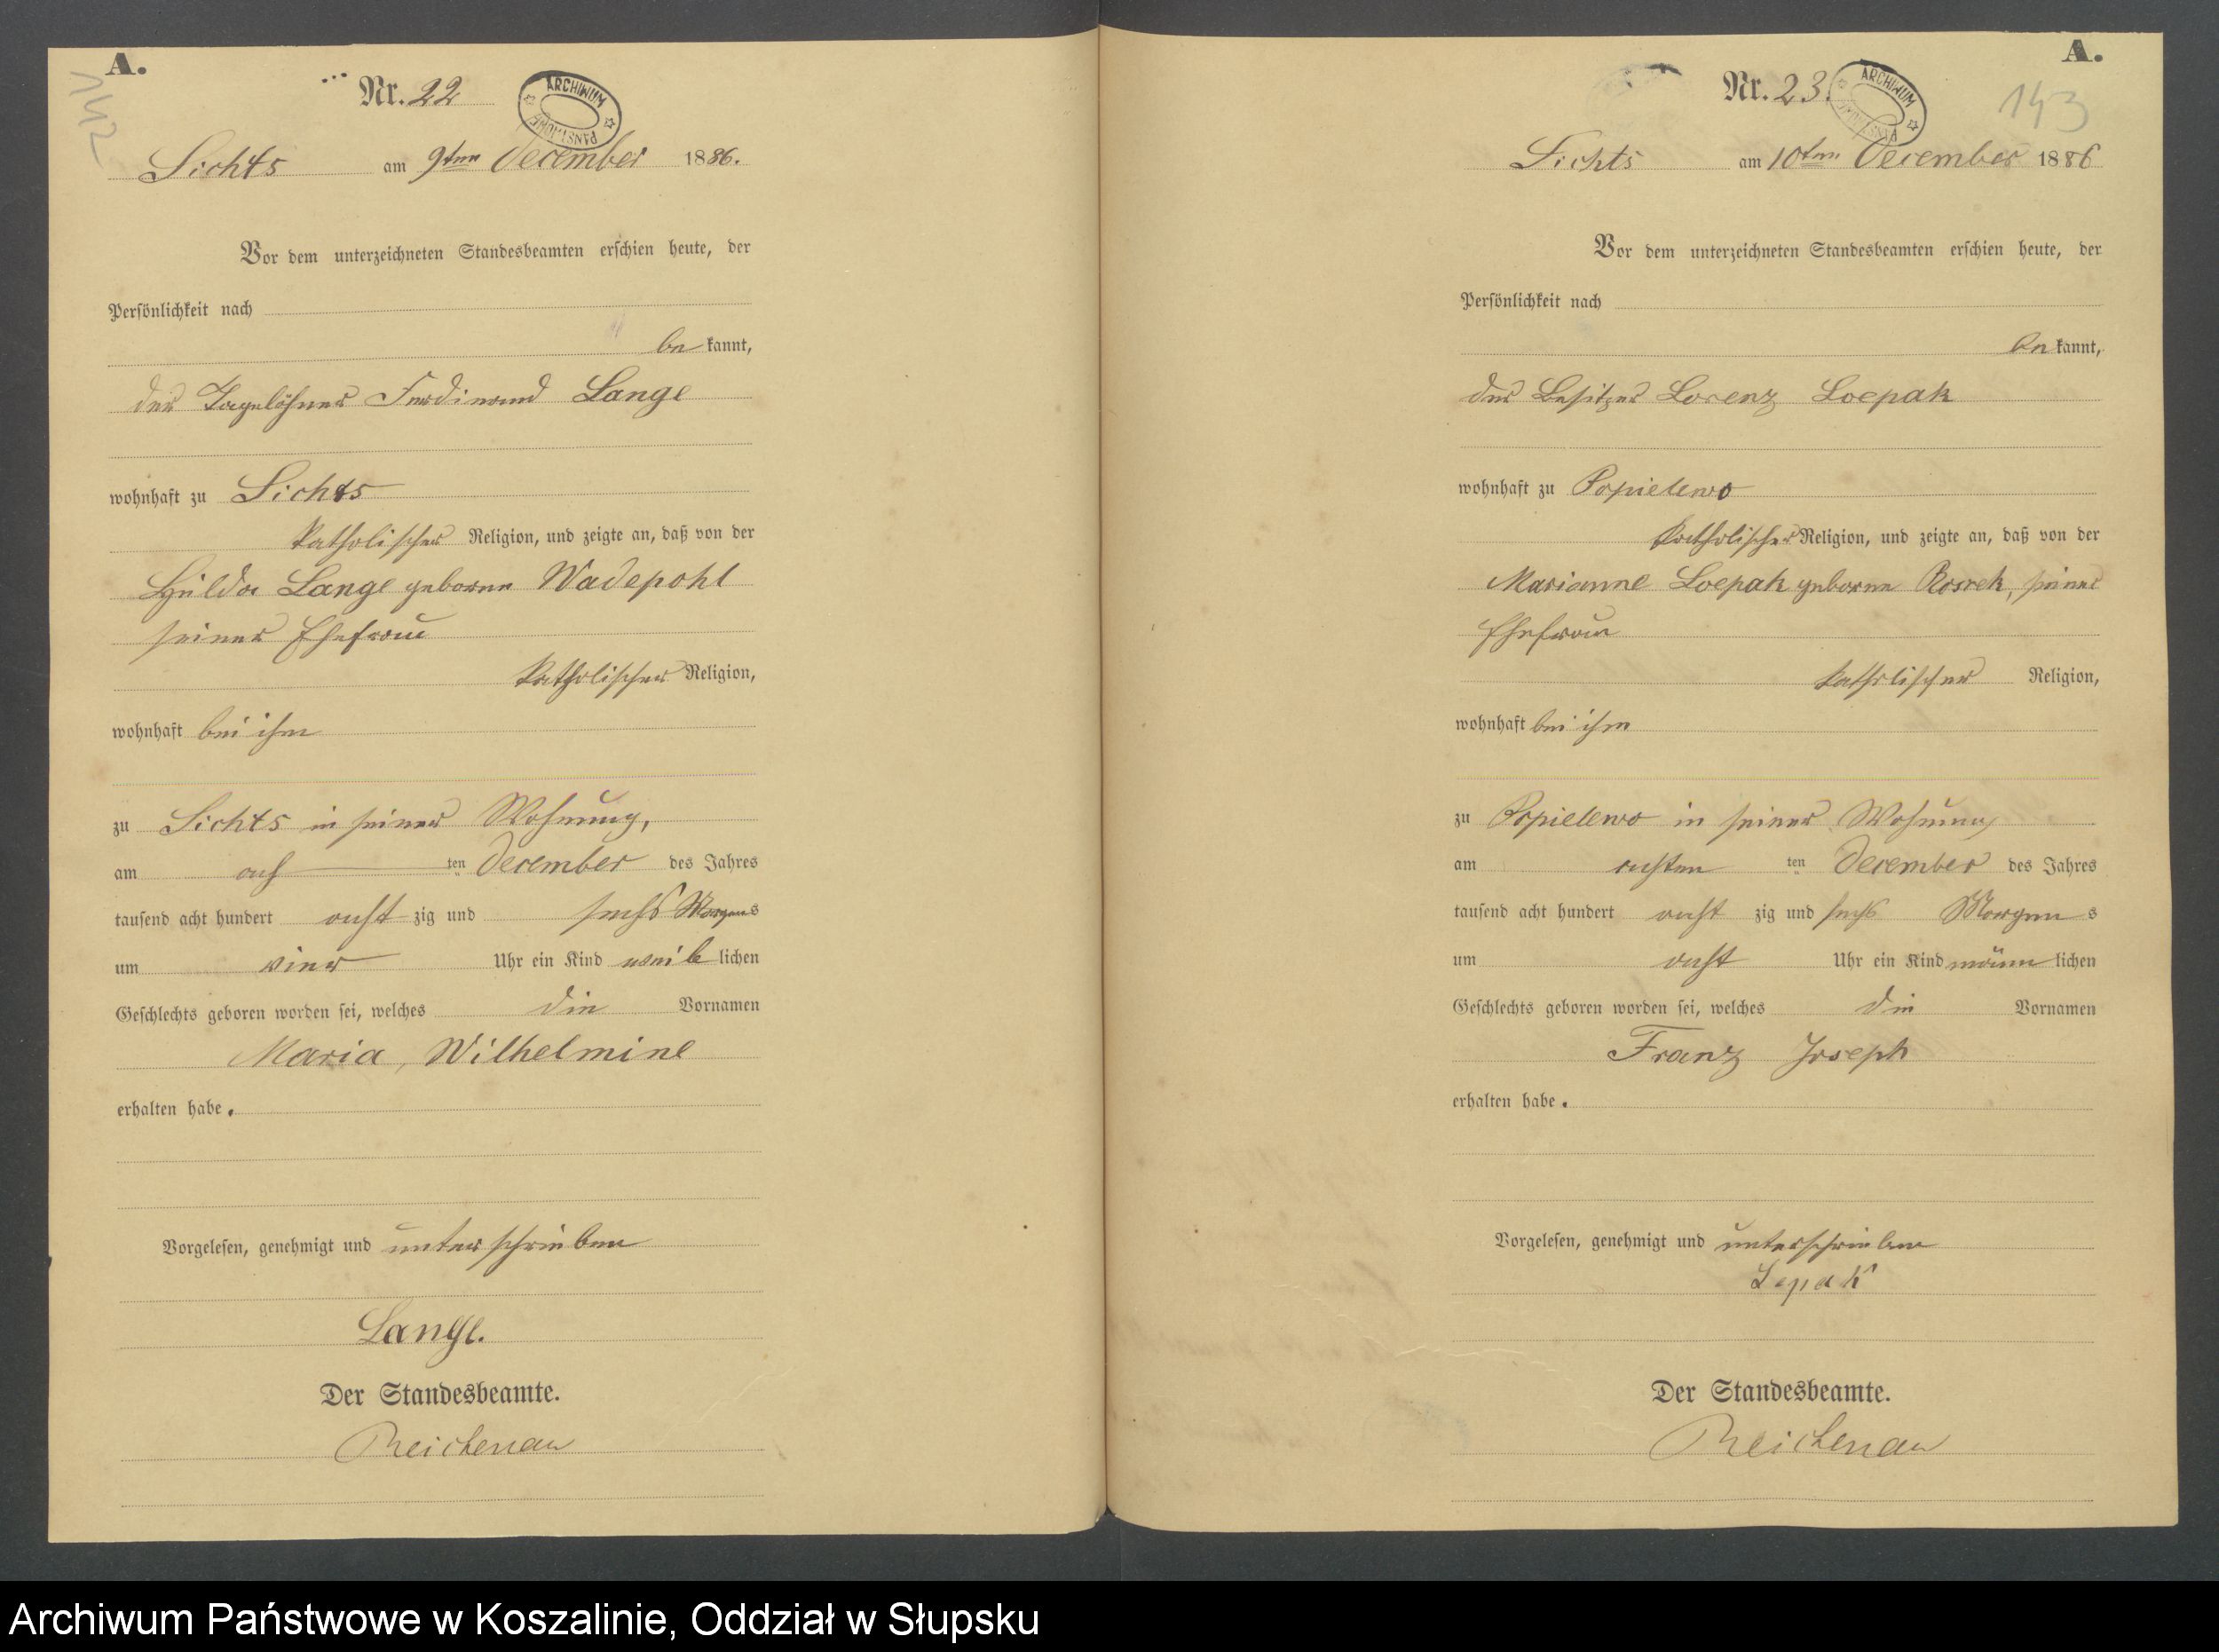 A.
142
Nr. 22
ARCHIWUM PAŃSTWOWE
Lichts am 9ten December 1886.
Vor dem unterzeichneten Standesbeamten erschien heute, der
Persönlichkeit nach
be kannt,
der Tagelöhner Ferdinand Lange
wohnhaft zu Lichts
katholischer Religion, und zeigte an, daß von der
Hulda Lange geborene Wadepohl
seiner Ehefrau
katholischer Religion,
wohnhaft bei ihm
zu Lichts in seiner Wohnung,
am ach ten December des Jahres
tausend acht hundert acht zig und sechs Morgens
um vier Uhr ein Kind weib lichen
Geschlechts geboren worden sei, welches die Vornamen
Maria, Wilhelmine
erhalten habe.
Vorgelesen, genehmigt und unterschrieben
Lange.
Der Standesbeamte.
Reichenau
A.
143
Nr. 23.
ARCHIWUM
Lichts am 10ten December 1886
Vor dem unterzeichneten Standesbeamten erschien heute, der
Persönlichkeit nach
be kannt,
der Besitzer Lorenz Loepak
wohnhaft zu Popielewo
katholischer Religion, und zeigte an, daß von der
Marianne Loepak geborene seiner
Ehefrau
katholischer Religion,
wohnhaft bei ihm
zu Popielewo in seiner Wohnung
am achten ten December des Jahres
tausend acht hundert acht zig und sechs Morgen s
um acht Uhr ein Kind männ lichen
Geschlechts geboren worden sei, welches die Vornamen
Franz Joseph
erhalten habe.
Vorgelesen, genehmigt und unterschrieben
Lepak
Der Standesbeamte.
Reichenau
Archiwum Państwowe w Koszalinie, Oddział w Słupsku